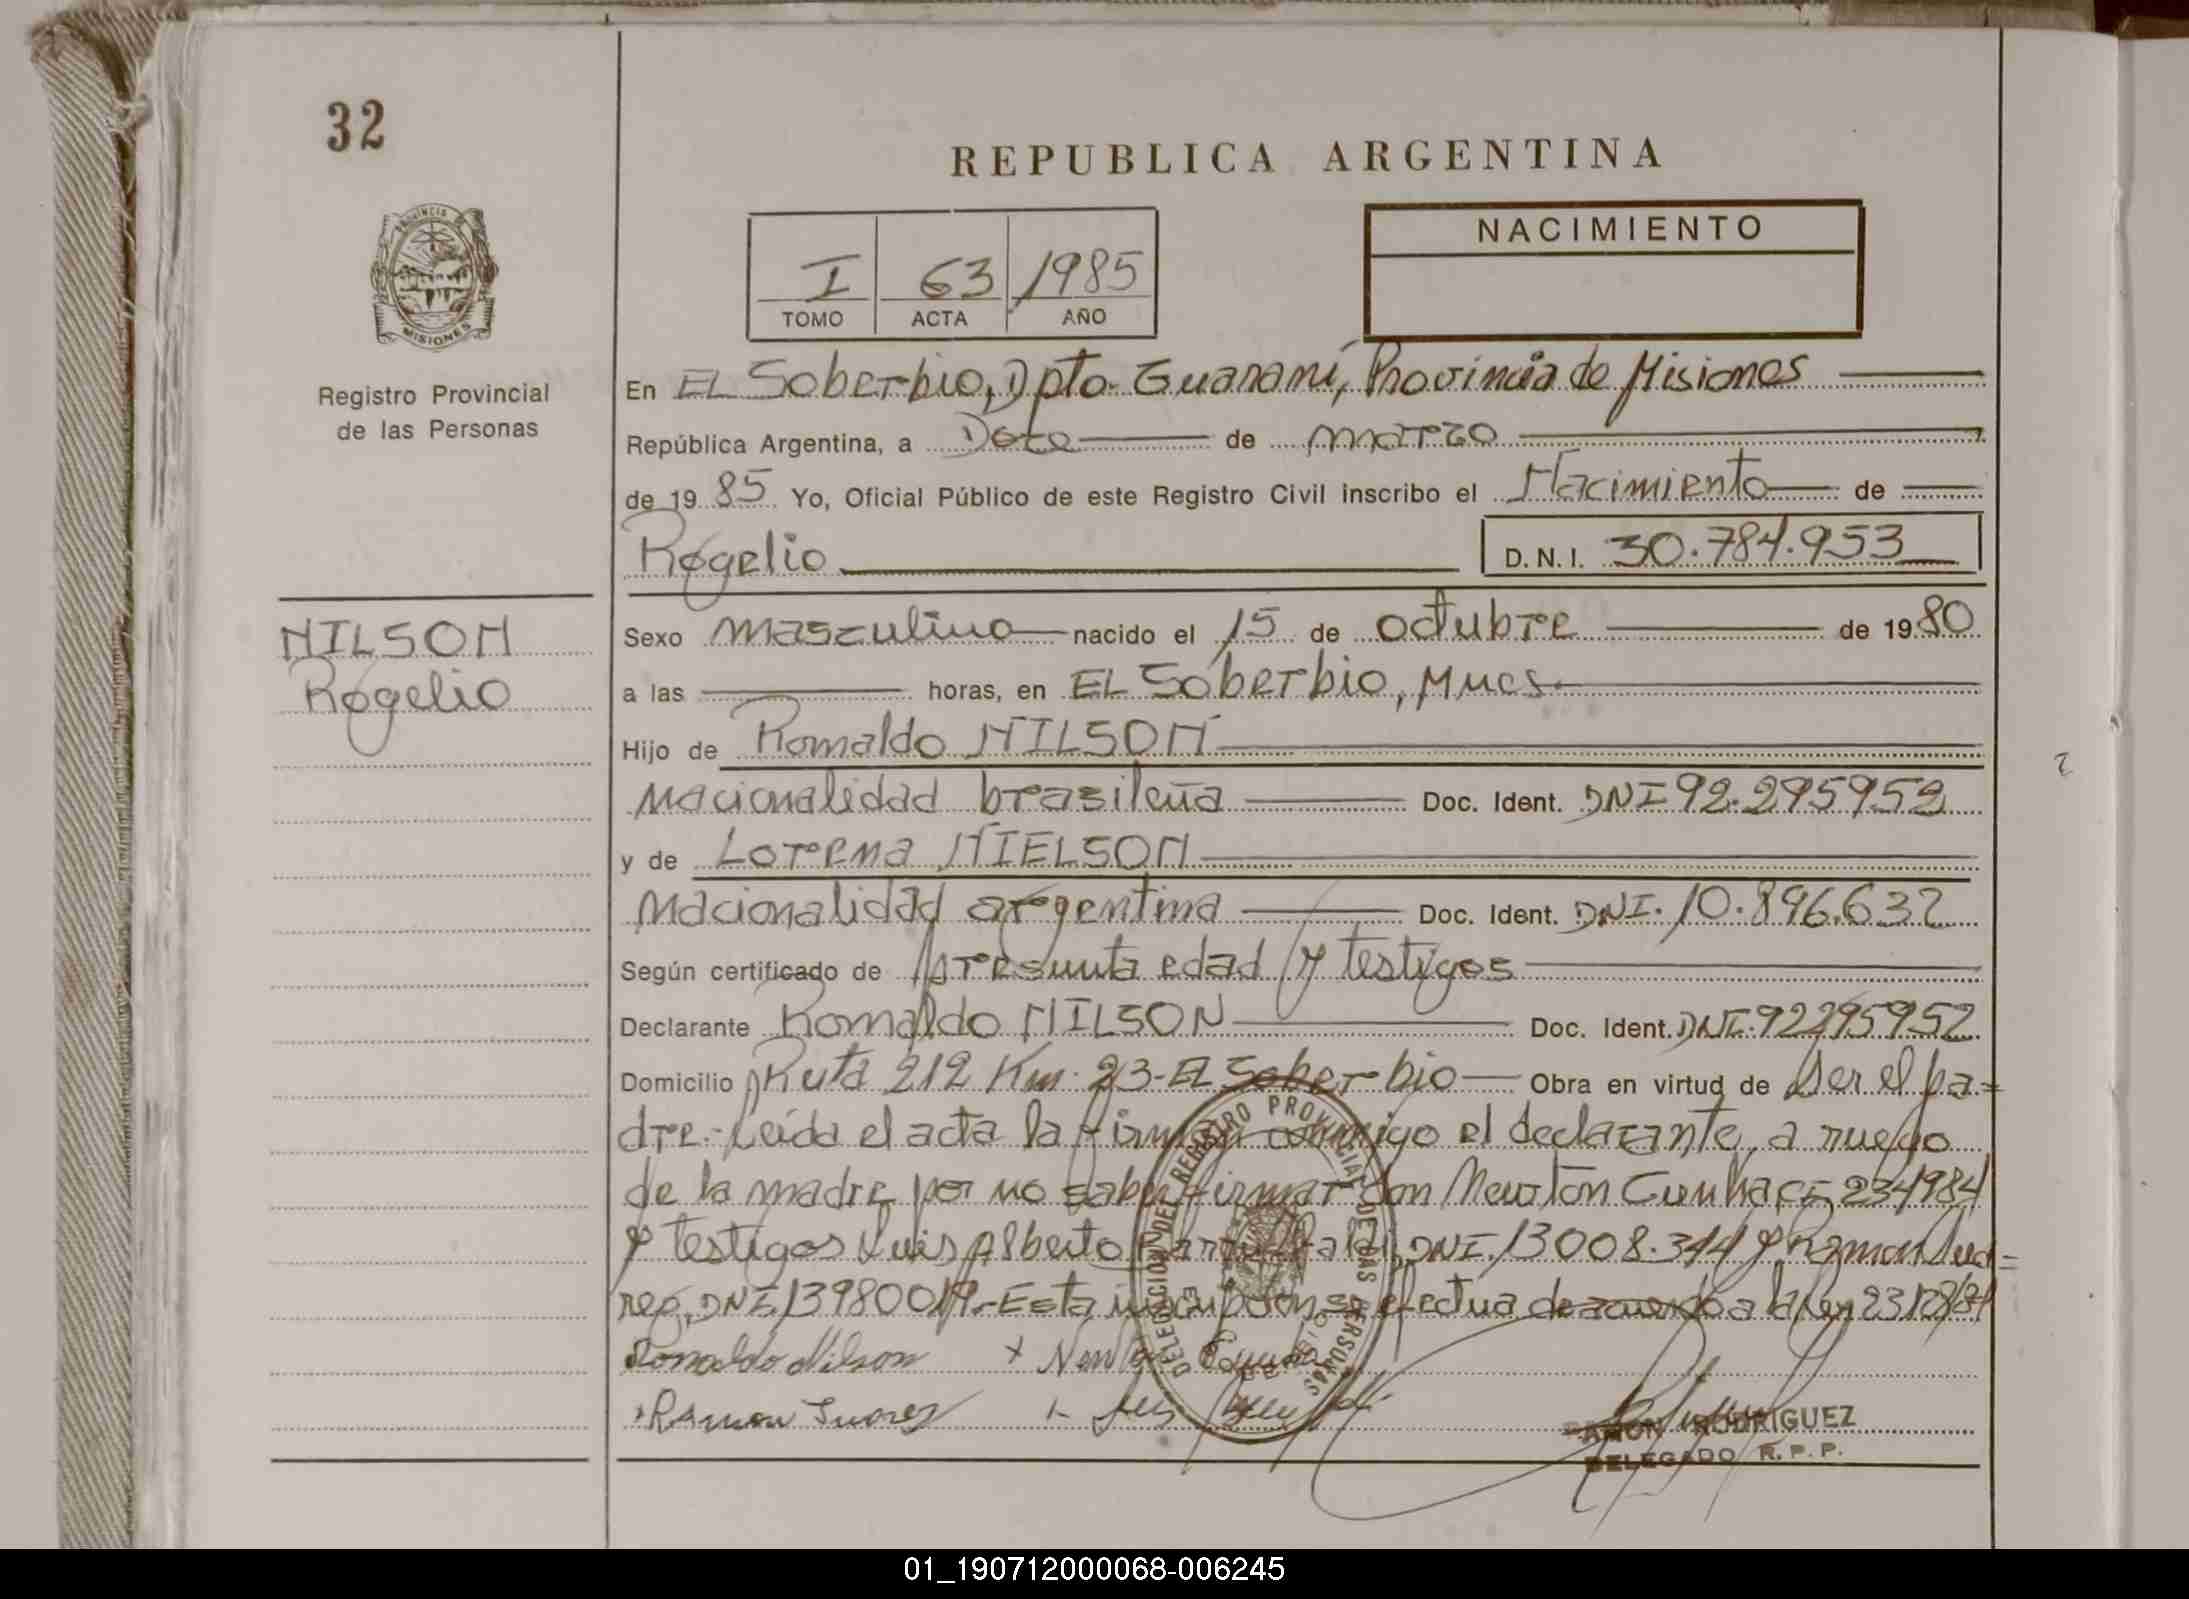 32
REPUBLICA ARGENTINA
PROVINCIA DE
MISIONES
Registro Provincial
de las Personas
I 63 1985
TOMO ACTA AÑO
NACIMIENTO
En EL Soberbio, Dpto. Guaraní, Provincia de Misiones
República Argentina, a Doce de marzo
de 1985 Yo, Oficial Público de este Registro Civil inscribo el Nacimiento de
Rogelio D.N.I. 30.784.953
NILSON
Rogelio
Sexo masculino nacido el 15 de octubre de 1980
a las horas, en EL Soberbio, Mnes.
Hijo de Romaldo NILSON
nacionalidad brasileña Doc. Ident. DNI 92.295952
y de Lorena NIELSON
nacionalidad argentina Doc. Ident. DNI. 10.896.632
Según certificado de presunta edad y testigos
Declarante Romaldo NILSON Doc. Ident. DNI. 92295952
Domicilio Ruta 212 Km. 23 - EL Soberbio Obra en virtud de ser el pa=
dre.- Leída el acta la firman conmigo el declarante, a ruego
de la madre por no saber firmar don Newton Cunha, CF 234984
y testigos Luis Alberto DNI. 13008.344 y Ramon Sua=
rez, DNI. 13980019.- Esta inscripción se efectua de acuerdo a la ley 23128/84
Romaldo Nilson + Newton Cunha
Ramon Suarez
DELEGACION DEL REGISTRO PROVINCIAL DE LAS PERSONAS
RAMON RODRIGUEZ
DELEGADO R.P.P.
01_190712000068-006245